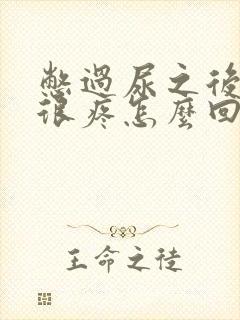 憋過尿之後
很疼怎麼回
王命之徒